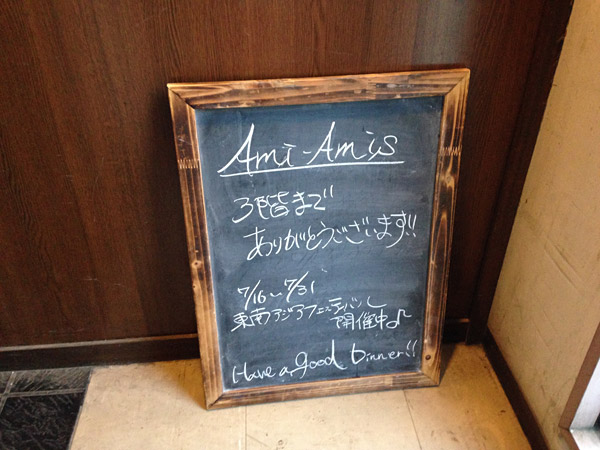 Ami-Amis
3階まで
ありがとうございます!!
7/16~7/31
東南アジアフェスティバル
開催中♪
Have a good Dinner!!